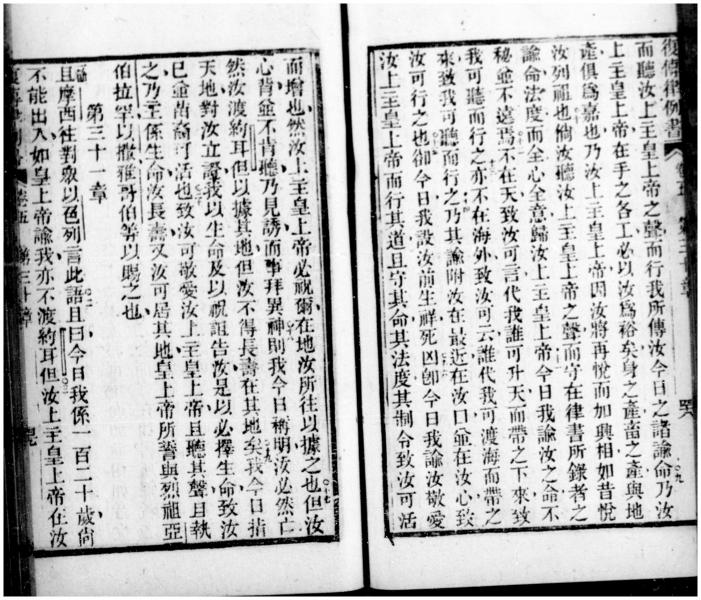 復傳律例書
而聽汝上主皇上帝之聲而行我所傳汝今日之諸諭命乃汝
上主皇上帝在手之各工必以汝爲裕矣身之產畜之產與地
產俱爲嘉也乃汝上主皇上帝因汝將再悅而加興相如昔悅
汝列祖也倘汝聽汝上主皇上帝之聲而守在律書所錄者之
諭命法度而全心全意歸汝上主皇上帝今日我諭汝之命不
秘並不遠焉不在天致汝可言代我誰可升天而帶之下來致
我可聽而行之亦不在海外致汝可云誰代我可渡海而帶之
來致我可聽而行之乃其諭附汝在最近在汝口並在汝心致
汝可行之也卻今日我設汝前生祥死凶卽今日我諭汝敬愛
汝上主皇上帝而行其道且守其命其法度其制令致汝可活
而增也然汝上主皇上帝必祝爾在地汝所往以據之也但汝
心背並不肯聽乃見誘而事拜異神則我今日稱明汝必然亡
然汝渡約耳但以據其地但汝不得長壽在其地矣我今日指
天地對汝立證我以生命及以祝詛告汝是以必擇生命致汝
已並苗裔可活也致汝可敬愛汝上主皇上帝且聽其聲且執
之乃主係生命汝長壽又汝可居其地皇上帝所誓與烈祖亞
伯拉罕以撒雅哥伯等以賜之也
第三十一章
且摩西往對眾以色列言此語且曰今日我係一百二十歲尙
不能出入如皇上帝諭我亦不渡約耳但汝上主皇上帝在汝
卷五 第三十章